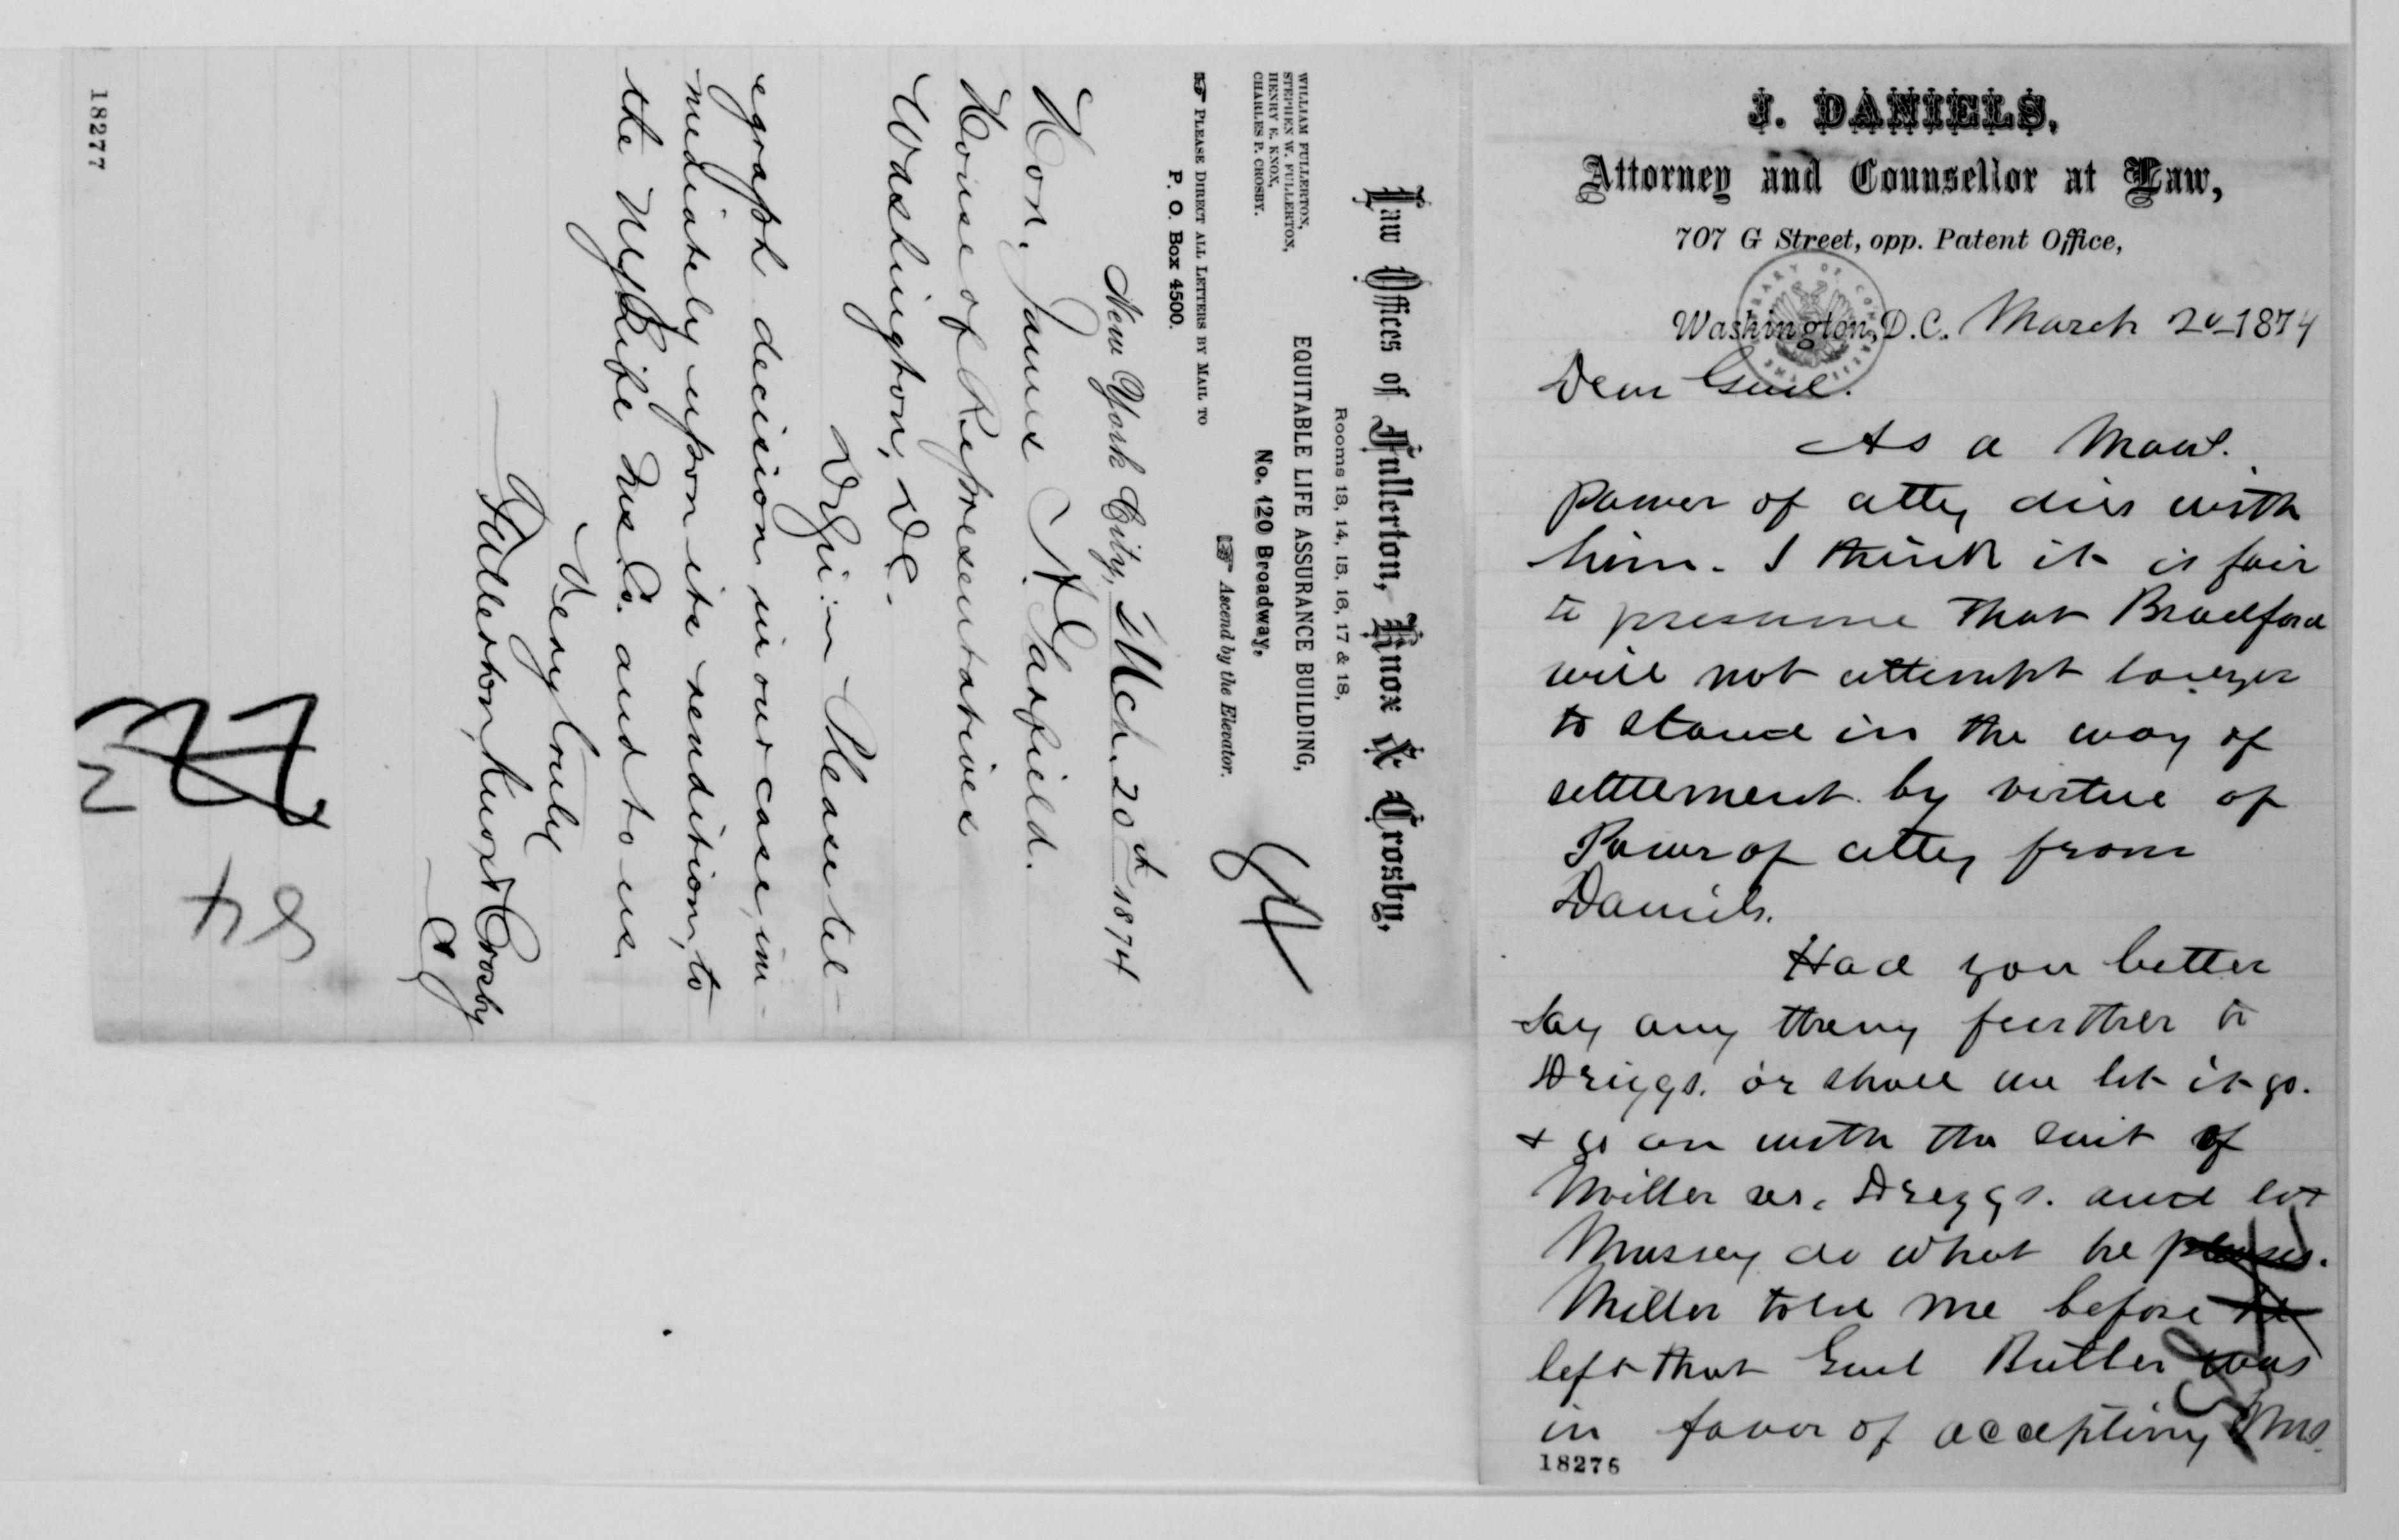 Law Offices of Fullerton, Knox & Crosby,
Rooms 13, 14, 15, 16, 17 & 18,
EQUITABLE LIFE ASSURANCE BUILDING,
No. 120 Broadway,
☞ Ascend by the Elevator.
WILLIAM FULLERTON,
STEPHEN W. FULLERTON,
HENRY E. KNOX,
CHARLES P. CROSBY.
☞ PLEASE DIRECT ALL LETTERS BY MAIL TO
P. O. Box 4500.
New York City, Mch. 20th 1874
Hon. James A. Garfield.
House of Representatives
Washington, D.C.
Dr Sir:— Please tel-
egraph decision in our case, im-
mediately upon its rendition, to
the NY Life Ins Co. and to us.
Very truly
Fullerton, Knox & Crosby
C
84
18277
J. DANIELS,
Attorney and Counsellor at Law,
707 G Street, opp. Patent Office,
Washington, D.C. March 20 1874
Dear Genl.
As a Man's
power of atty dies with
him. I think it is fair
to presume that Bradford
will not attempt longer
to stand in the way of
settlement by virtue of
Power of atty from
Daniels.
Had you better
say any thing further to
Driggs. or shall we let it go.
& go on with the suit of
Miller vs. Driggs. and let
Mussey do what he pleases.
Miller told me before he
left that Genl Butler was
in favor of accepting Mrs.
18276